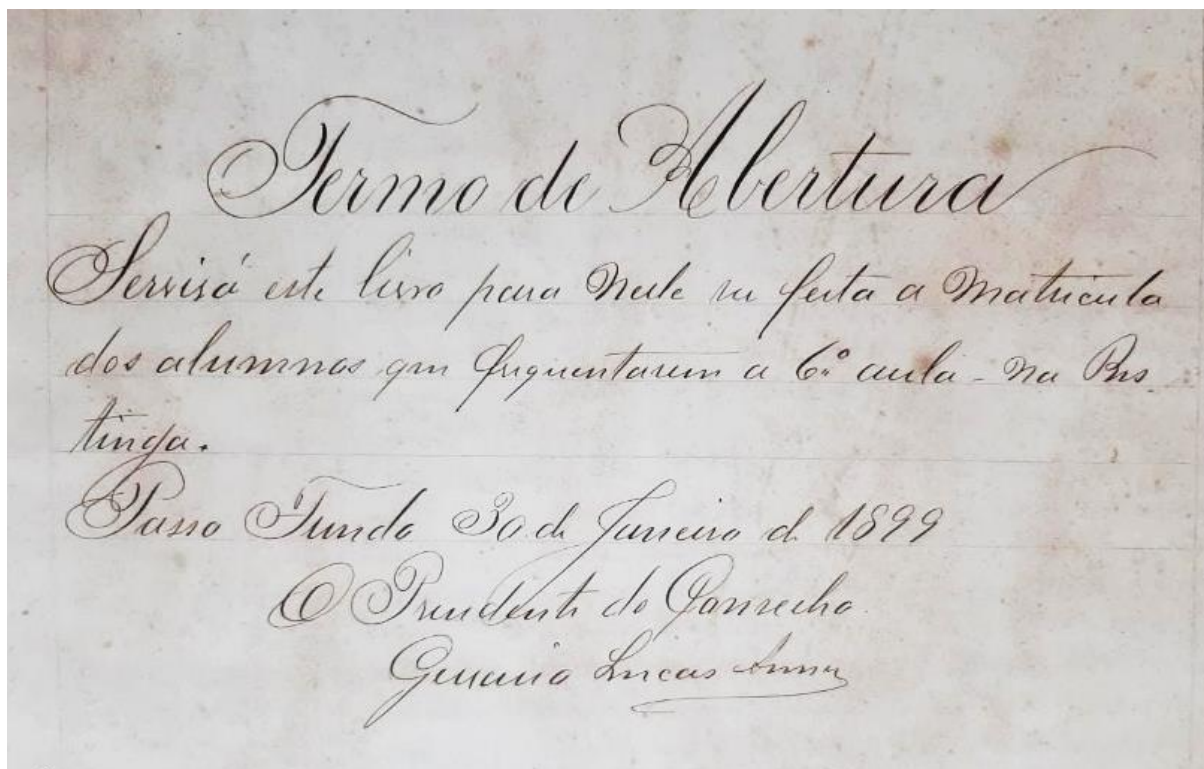 Termo de Abertura
Servirá este livro para nele ser feita a Matricula
dos alumnos que frequentarem a 6ª aula - na Res
tinga.
Passo Fundo 30 de Janeiro de 1899
O Presidente do Conselho
Gervasio Lucas Annes